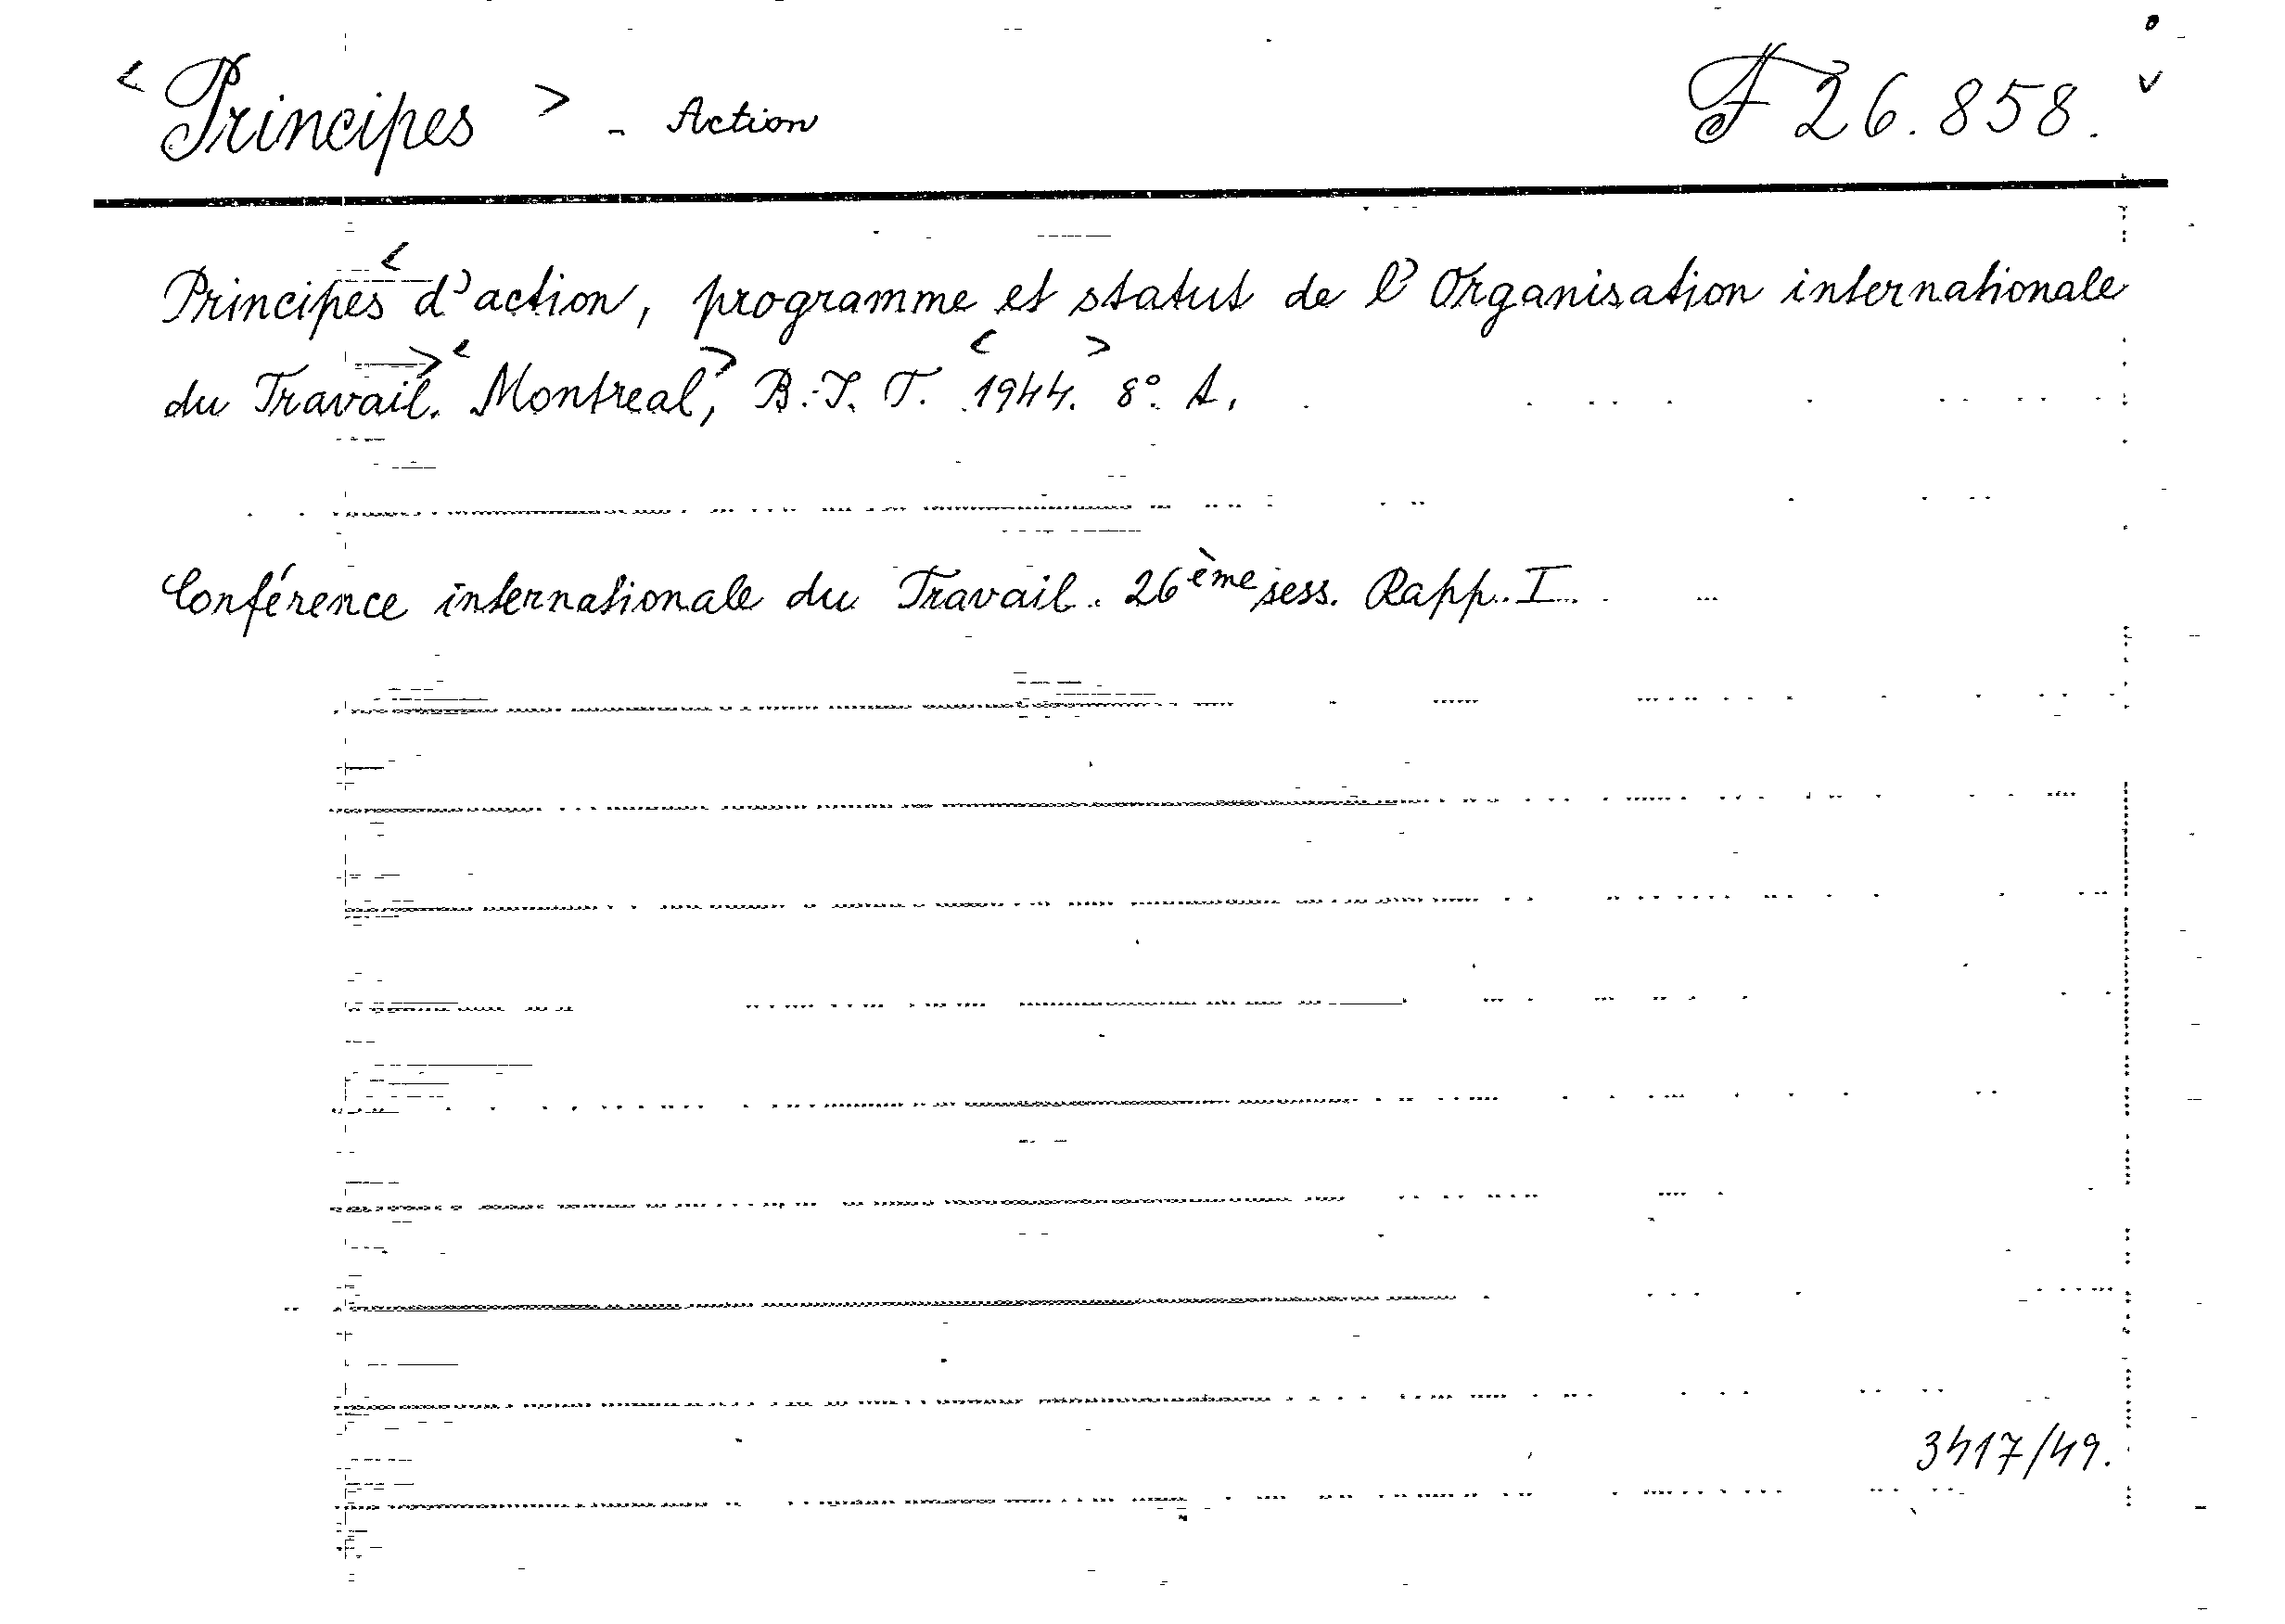 <Principes> - Action F 26.858.
Principes <d'action, programme et statut de l'Organisation internationale
du Travail.> <Montreal,> B.I.T. <1944.> 8°. A.
Conférence internationale du Travail. 26ème sess. Rapp. I.
3417/49.